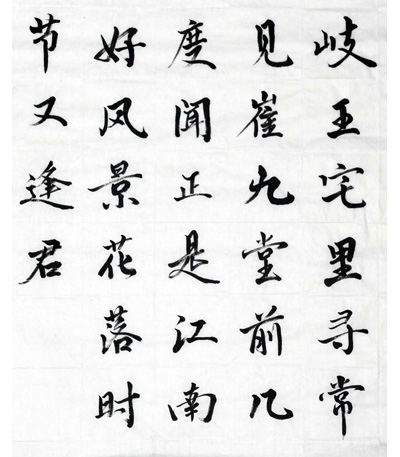 岐王宅里寻常
见崔九堂前几
度闻正是江南
好风景花落时
节又逢君